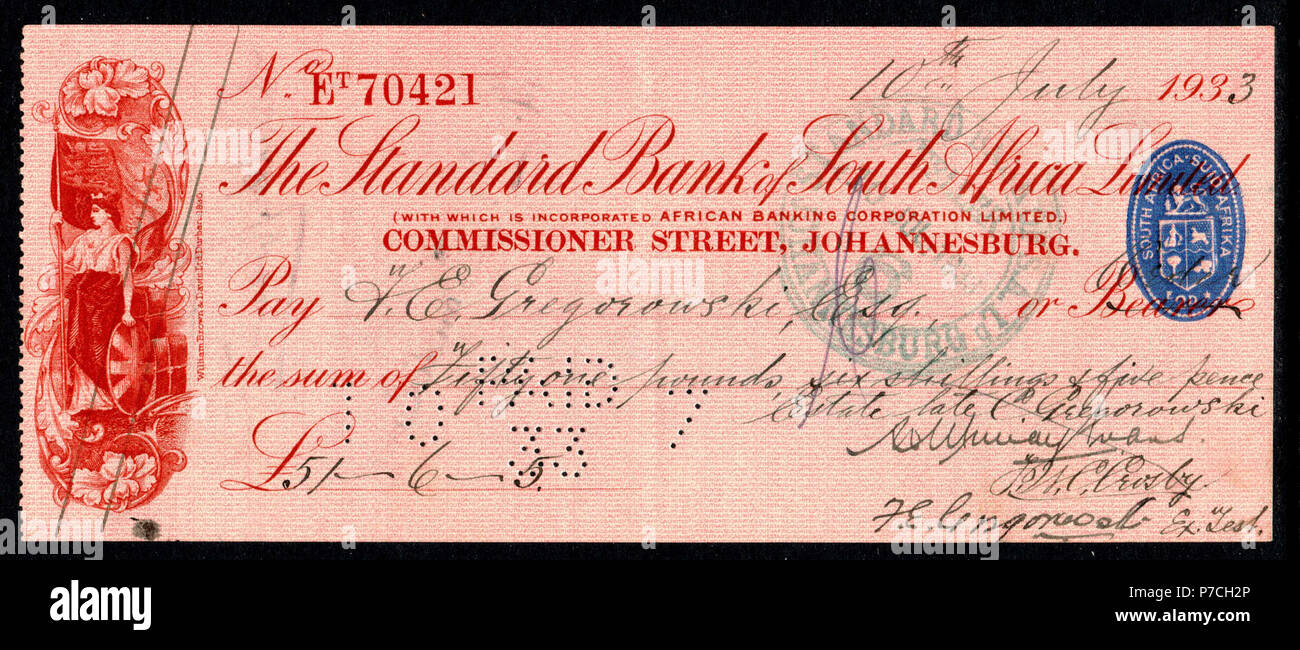 No. ET 70421 10th July 1933
The Standard Bank of South Africa Limited
(WITH WHICH IS INCORPORATED AFRICAN BANKING CORPORATION LIMITED.)
COMMISSIONER STREET, JOHANNESBURG.
SOUTH AFRICA·SUID AFRIKA
Pay F. E. Gregorowski, Esq., or Bearer Order
the sum of Fifty one pounds, six shillings & five pence
PAID
10 7
33
Estate late C Gregorowski
£51-6-5.
H. C. Crosby
F E Gregorowski Ex. Test.
William Brown & Co.
alamy
alamy
Image ID: P7CH2P
www.alamy.com